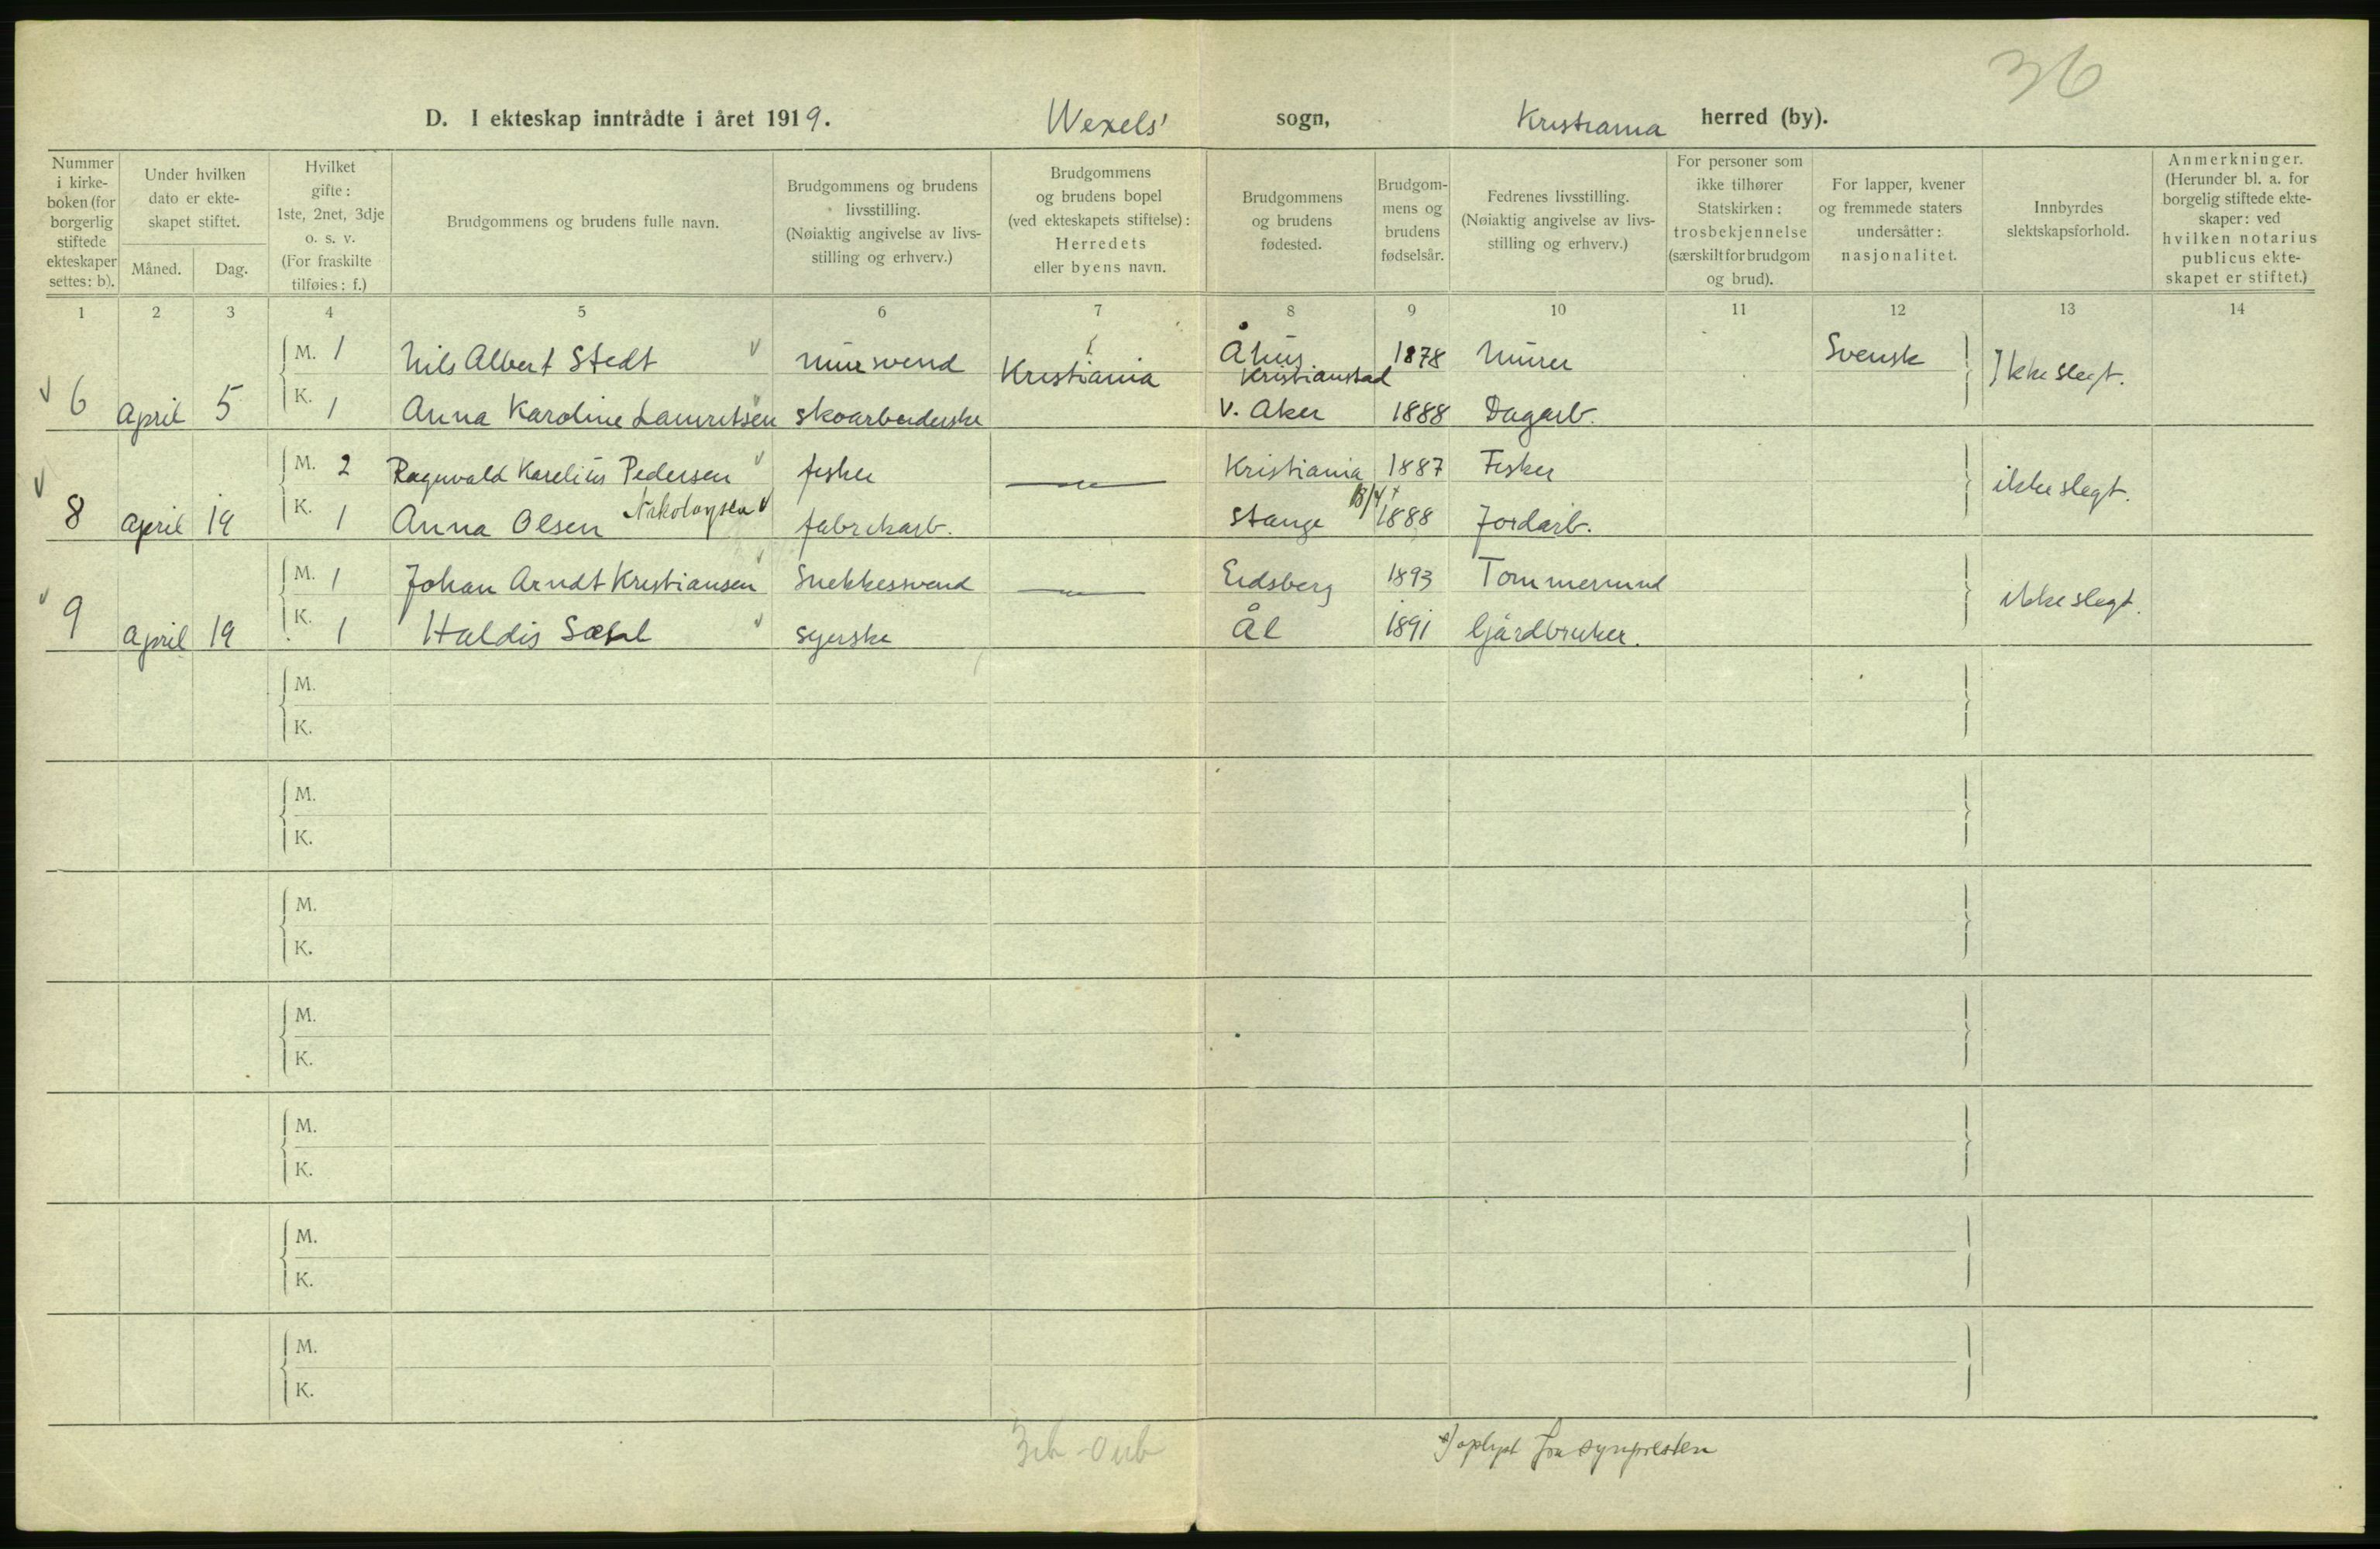 36
D. I ekteskap inntrådte i året 1919. Wexels' sogn, Kristiania herred (by).
Nummer i kirke-boken (for borgerlig stiftede ekteskaper settes: b).
Under hvilken dato er ekte-skapet stiftet.
Måned. Dag.
Hvilket gifte: 1ste, 2net, 3dje o. s. v. (For fraskilte tilføies: f.)
Brudgommens og brudens fulle navn.
Brudgommens og brudens livsstilling. (Nøiaktig angivelse av livs-stilling og erhverv.)
Brudgommens og brudens bopel (ved ekteskapets stiftelse): Herredets eller byens navn.
Brudgommens og brudens fødested.
Brudgom-mens og brudens fødselsår.
Fedrenes livsstilling. (Nøiaktig angivelse av livs-stilling og erhverv.)
For personer som ikke tilhører Statskirken: trosbekjennelse (særskilt for brudgom og brud).
For lapper, kvener og fremmede staters undersåtter: nasjonalitet.
Innbyrdes slektskapsforhold.
Anmerkninger. (Herunder bl. a. for borgelig stiftede ekte-skaper: ved hvilken notarius publicus ekte-skapet er stiftet.)
1 2 3 4 5 6 7 8 9 10 11 12 13 14
M. 1 Nils Albert Stedt murswend Kristiania Åhus Kristianstad 1878 Murer Svensk
6 April 5 K. 1 Anna Karoline Lauritsen skoarbeiderske V. Aker 1888 Dagarb. Ikke slegt.
M. 2 Ragnvald Karelius Pedersen fisker — Kristiania 1887 Fisker
8 April 19 K. 1 Anna Olsen Nikolaysen fabrikarb. Stange 18/4 1888 Jordarb. ikke slegt.
M. 1 Johan Arndt Kristiansen Snekkersvend — Eidsberg 1893 Tømmermand
9 April 19 K. 1 Haldis syerske Ål 1891 Gjårdbruker. ikke slegt.
M.
K.
M.
K.
M.
K.
M.
K.
M.
K.
M.
K.
M.
K.
oplyst fra sognpresten